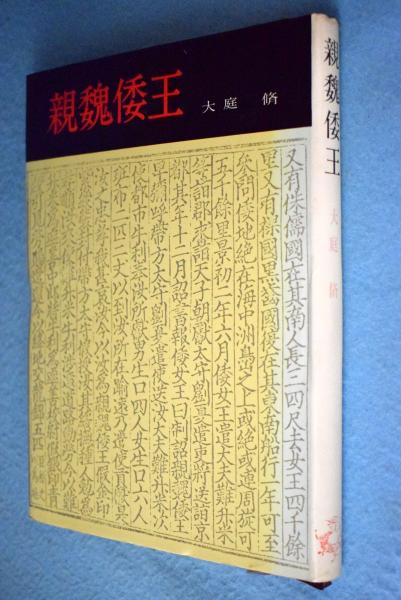 親魏倭王
大庭 脩
又有侏儒國在其南人長三四尺去女王四千餘
里又有裸國黑齒國復在其東南船行一年可至
參問倭地絕在海中洲島之上或絕或連周旋可
五千餘里景初二年六月倭女王遣大夫難升米
等詣郡求詣天子朝獻太守劉夏遣吏將送詣京
都其年十二月詔書報倭女王曰制詔親魏倭王
卑彌呼帶方太守劉夏遣使送汝大夫難升米次
使都市牛利奉汝所獻男生口四人女生口六人
班布二匹二丈以到汝所在踰遠乃遣使貢獻是
汝之忠孝我甚哀汝今以汝為親魏倭王假金印
紫綬裝封付帶方太守假授汝其綏撫種人勉為
親魏倭王
大庭 脩